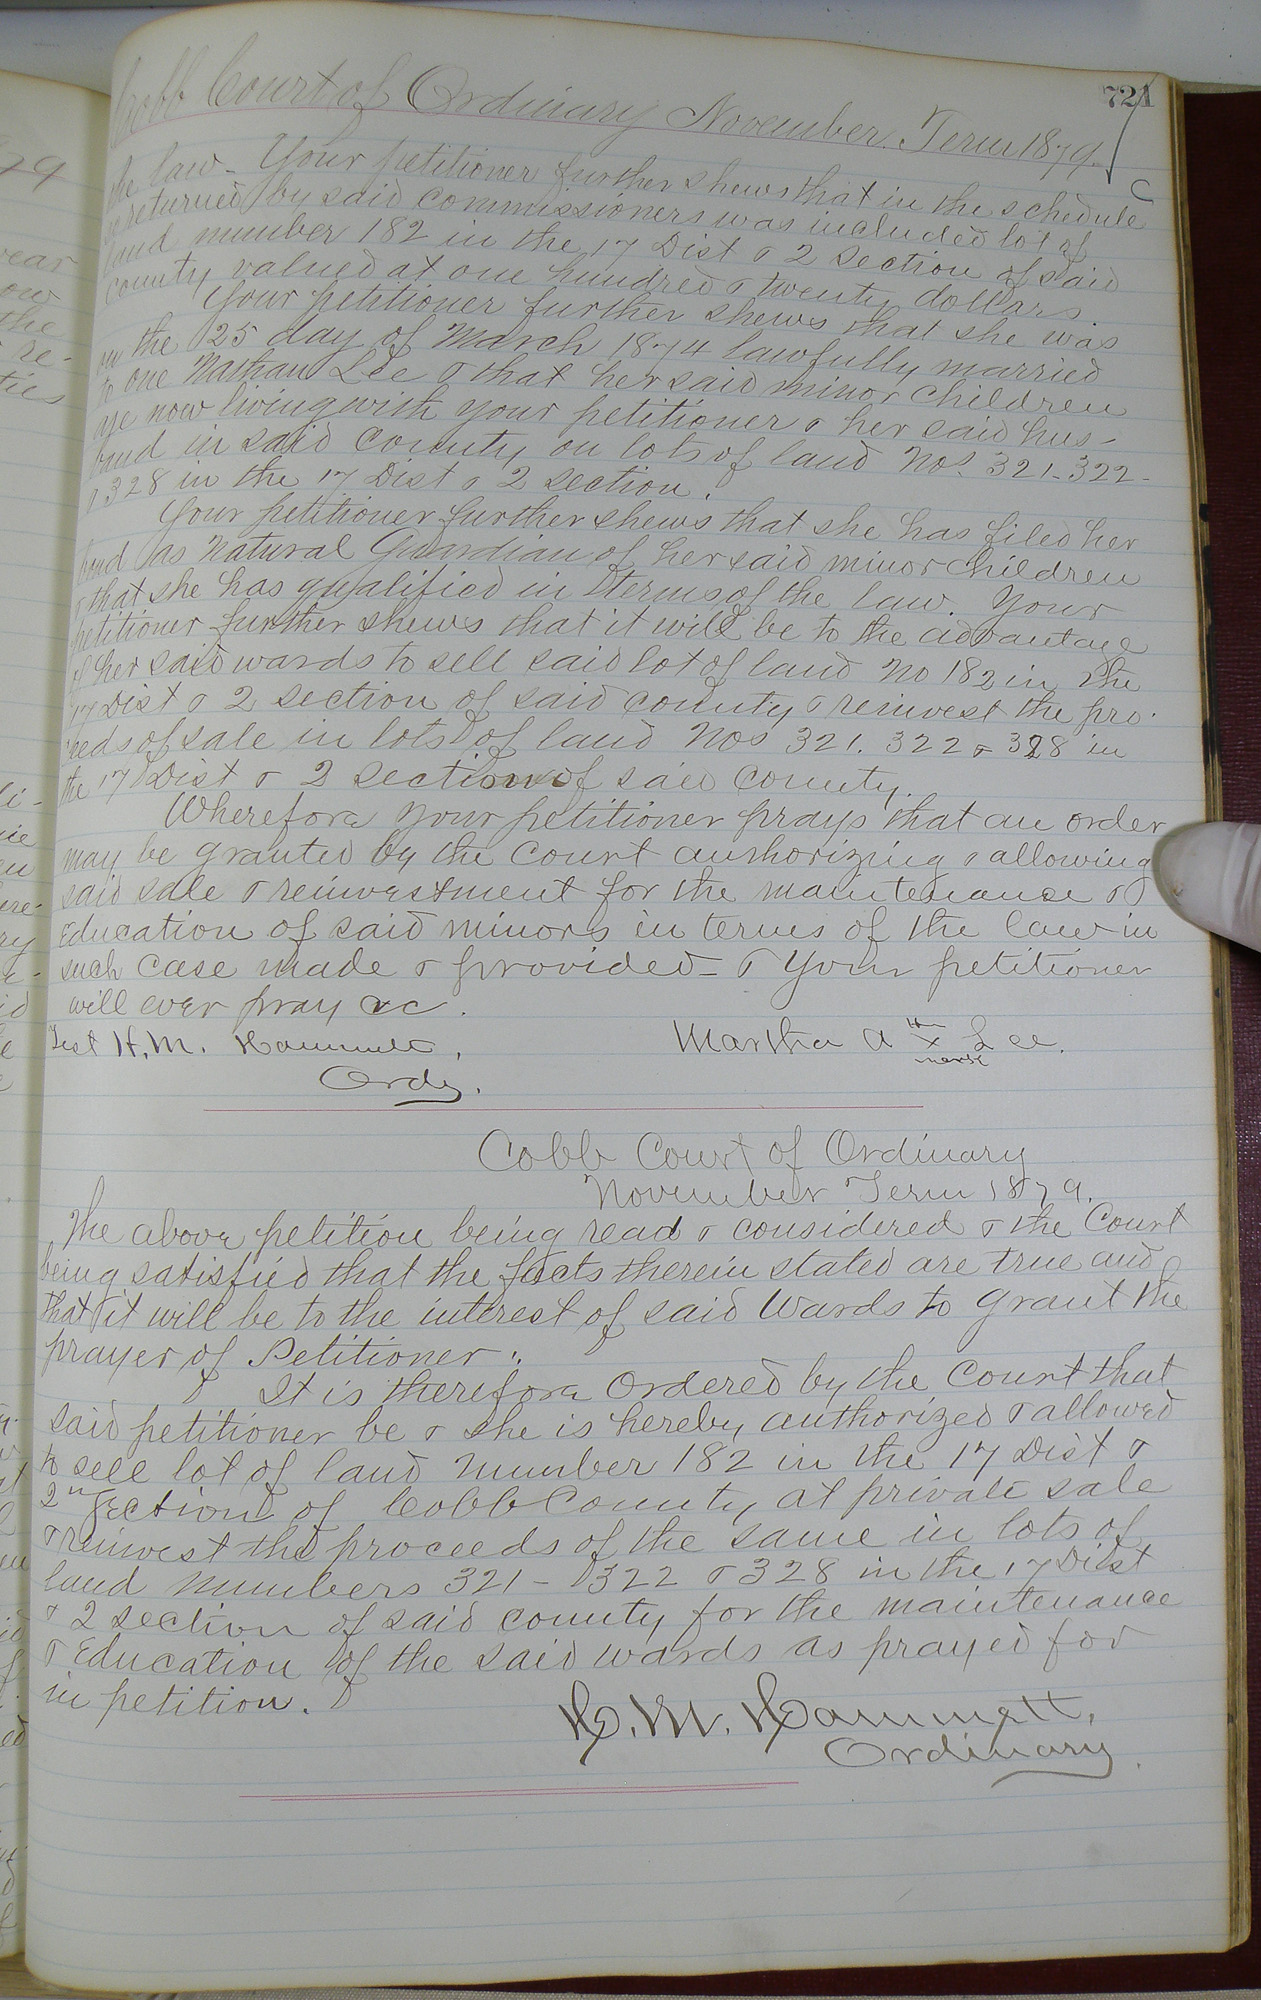 721
Cobb Court of Ordinary November Term 1879.
the law - Your petitioner further shews that in the schedule
returned by said commissioners was included lot of
land number 182 in the 17 Dist & 2 section of said
county valued at one hundred & twenty dollars.
Your petitioner further shews that she was
on the 25 day of March 1874 lawfully married
to one Nathan Lee & that her said minor children
are now living with your petitioner & her said hus-
band in said county on lots of land Nos. 321-322-
& 328 in the 17 Dist & 2 section.
Your petitioner further shews that she has filed her
bond as Natural Guardian of her said minor children
& that she has qualified in terms of the law. Your
petitioner further shews that it will be to the advantage
of her said wards to sell said lot of land No 182 in the
17 Dist & 2 section of said county & reinvest the pro-
ceeds of sale in lots of land Nos 321. 322 & 328 in
the 17 Dist & 2 section of said county.
Wherefore your petitioner prays that an order
may be granted by the court authorizing & allowing
said sale & reinvestment for the maintenance &
Education of said minors in terms of the law in
such case made & provided - & your petitioner
will ever pray &c.
Test H. M. Hammett, Martha A her x mark Lee.
Ordy.
Cobb Court of Ordinary
November Term 1879.
The above petition being read & considered & the Court
being satisfied that the facts therein stated are true and
that it will be to the interest of said wards to grant the
prayer of Petitioner.
It is therefore Ordered by the Court that
said petitioner be & she is hereby authorized & allowed
to sell lot of land Number 182 in the 17 Dist &
2nd Section of Cobb County at private sale
& reinvest the proceeds of the same in lots of
land Numbers 321 - 322 & 328 in the 17 Dist
& 2 section of said county for the maintenance
& Education of the said wards as prayed for
in petition.
H. M. Hammett,
Ordinary.